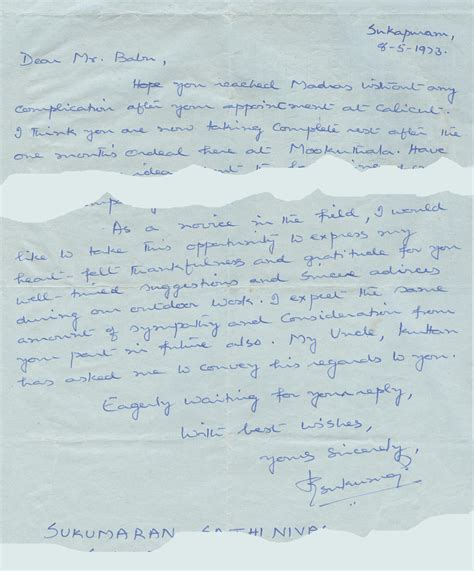 Sukapuram,
8-5-1973.
Dear Mr. Babu,
Hope you reached Madras without any
complication after your appointment at Calicut.
I think you are now taking complete rest after the
one month's ordeal there at Mookuthala. Have
idea
As a novice in the field, I would
like to take this opportunity to express my
heart-felt thankfulness and gratitude for you
well-timed suggestions and sincere advices
during our outdoor work. I expect the same
amount of sympathy and consideration from
your part in future also. My Uncle, Kuttan
has asked me to convey his regards to you.
Eagerly waiting for your reply,
With best wishes,
yours sincerely,
SUKUMARAN